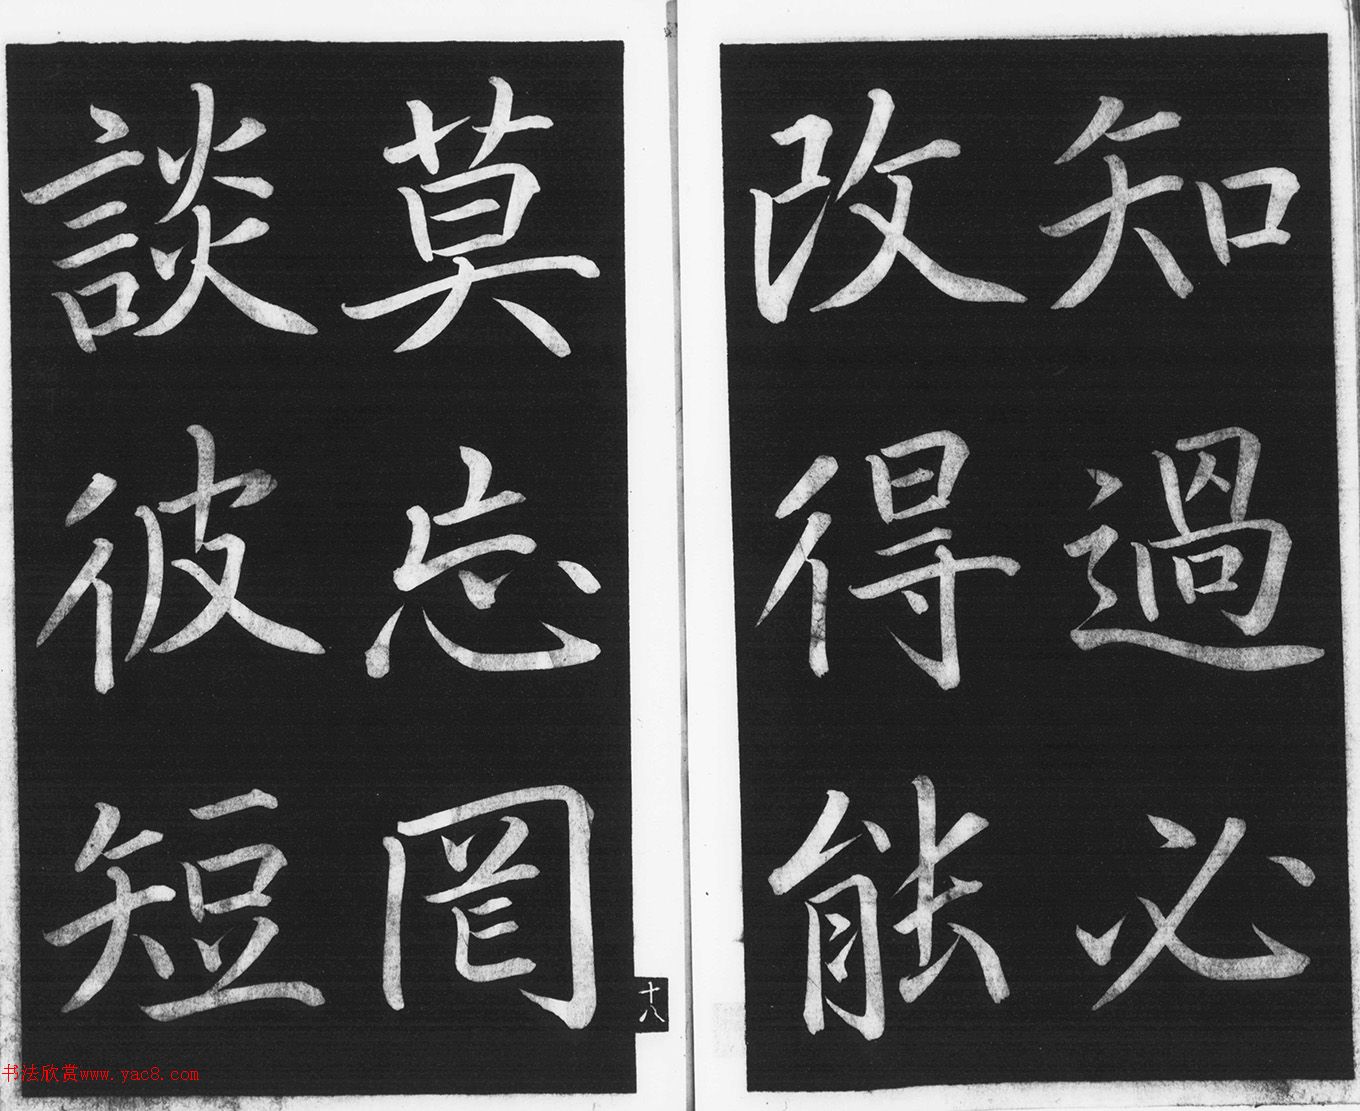 知過必
改得能
莫忘罔
談彼短
十八
书法欣赏www.yac8.com